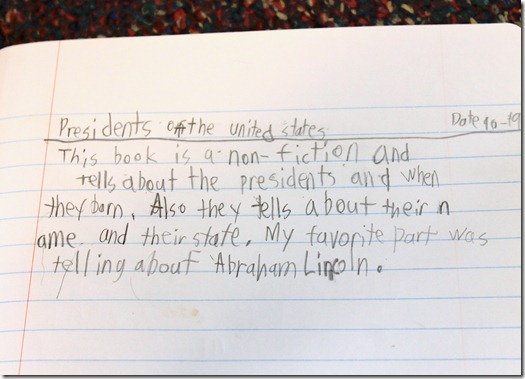 Presidents of the united states Date 10-19
This book is a non-fiction and
tells about the presidents and when
they born. Also they tells about their n
ame. and their state. My favorite part was
telling about Abraham Lincoln.